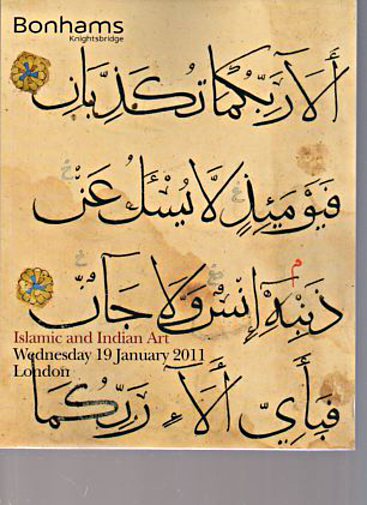 Bonhams
Knightsbridge
أَلَآءِ رَبِّكُمَا تُكَذِّبَانِ
فَيَوْمَئِذٍ لَّا يُسْئَلُ عَنْ
ذَنْبِهِٓ إِنْسٌ وَلَا جَآنٌّ
Islamic and Indian Art
Wednesday 19 January 2011
London
فَبِأَيِّ أَلَآءِ رَبِّكُمَا